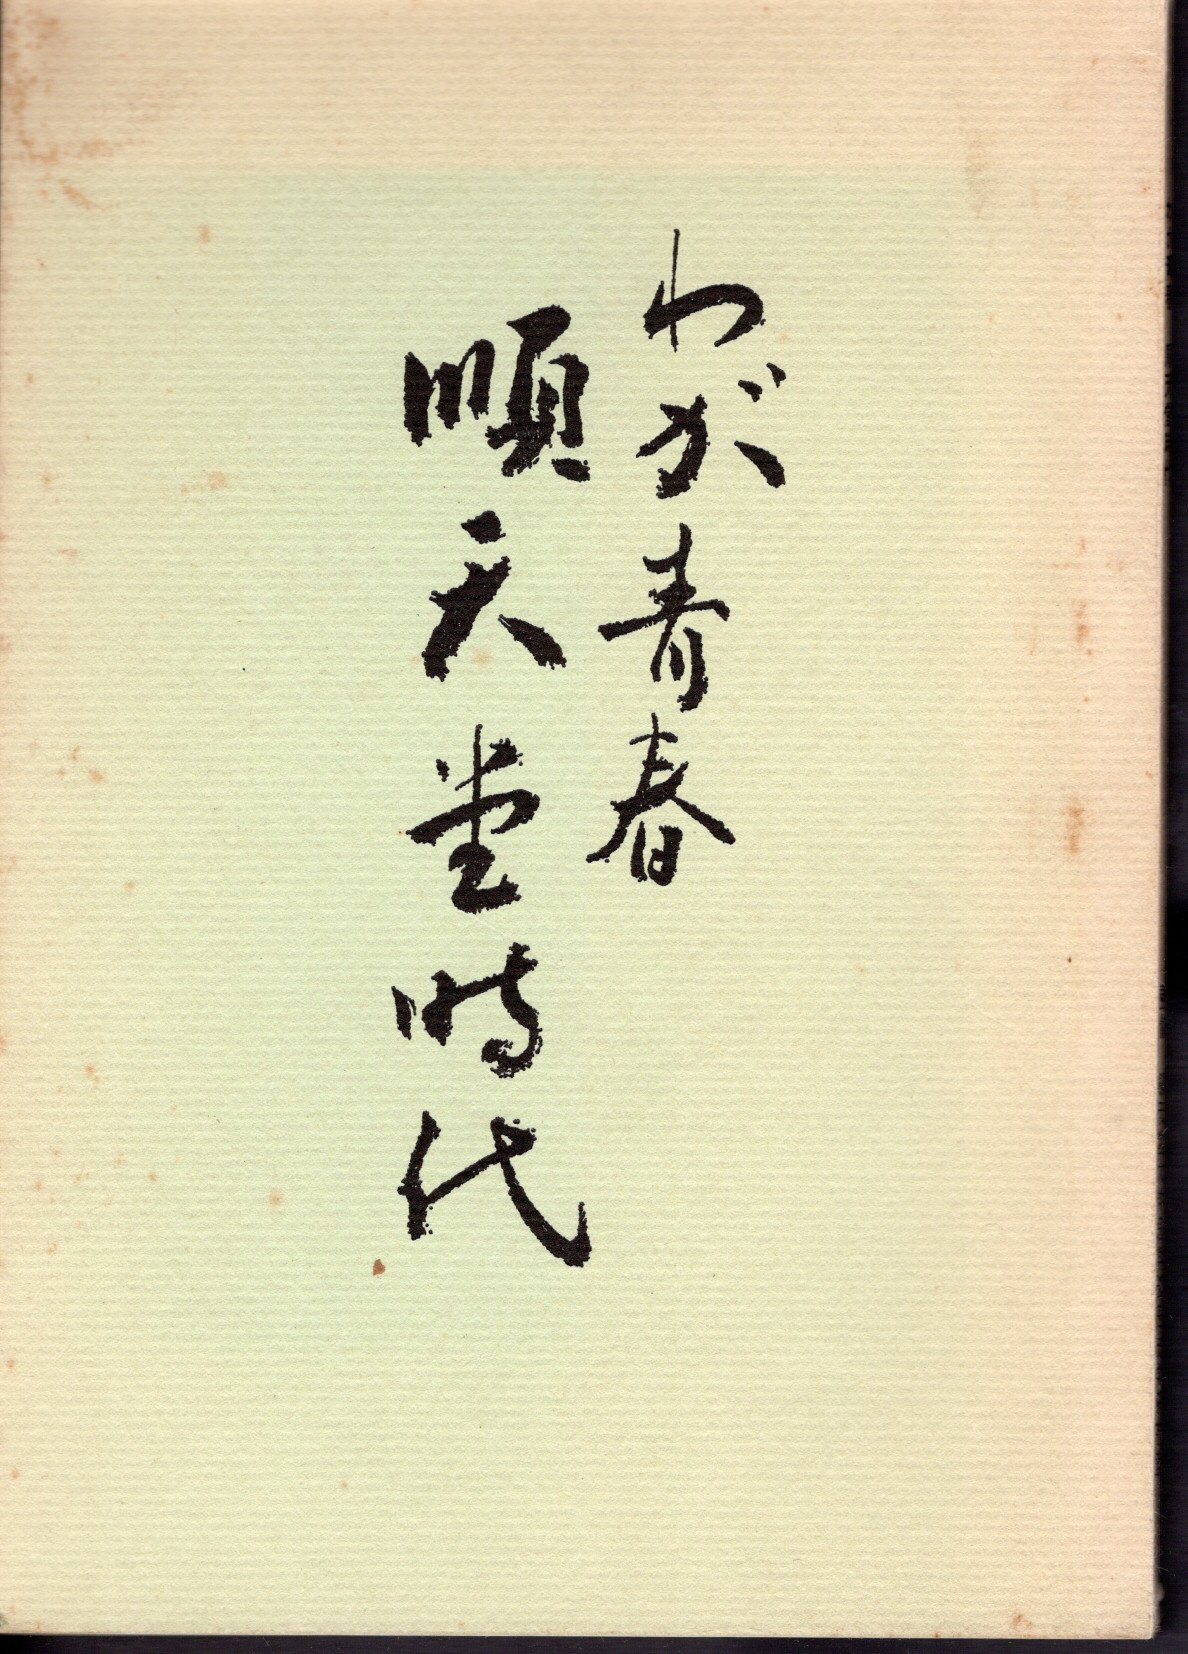 わが青春
順天堂時代